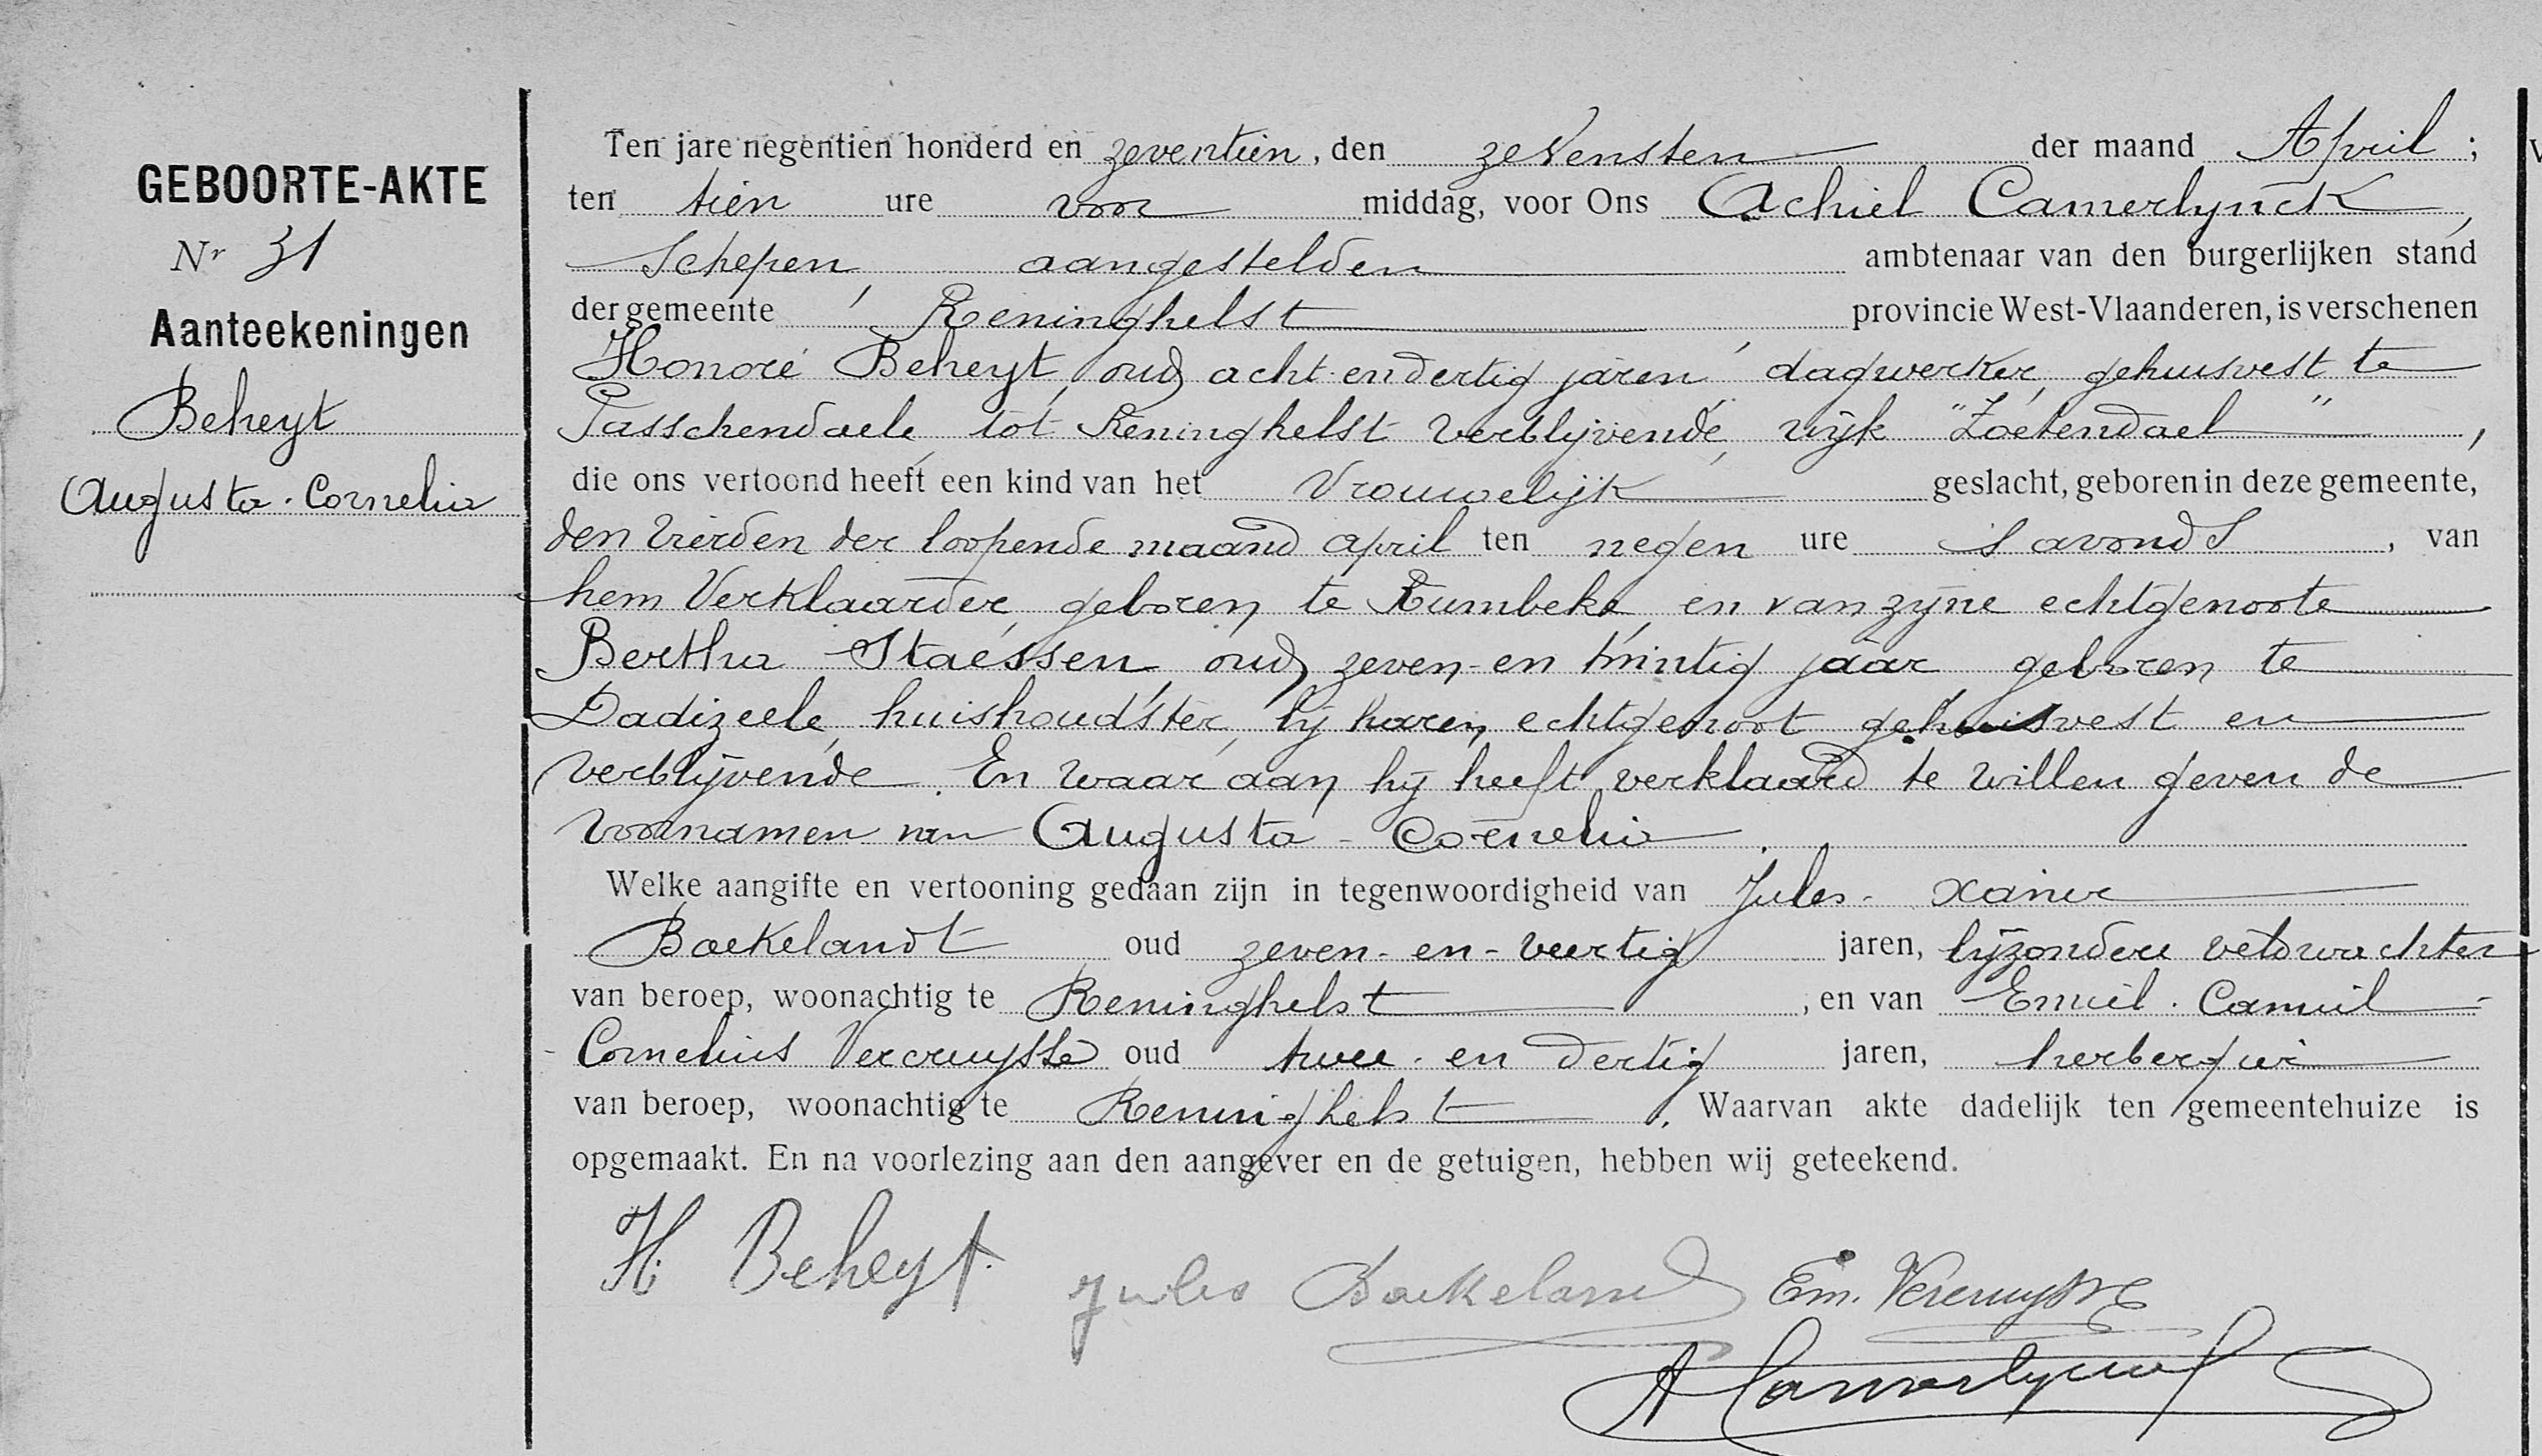 GEBOORTE-AKTE
Nr 31
Aanteekeningen
Beheyt
Augusta-Cornelia
Ten jare negentien honderd en zeventien, den zevensten der maand April;
ten tien ure voor middag, voor Ons Achiel Camerlynck,
Schepen, aangestelden ambtenaar van den burgerlijken stand
der gemeente Reninghelst provincie West-Vlaanderen, is verschenen
Honoré Beheyt, oud acht-en dertig jaren, dagwerker, gehuisvest te
Passchendaele, tot Reninghelst verblijvende, wijk "Zoetendael",
die ons vertoond heeft een kind van het Vrouwelijk geslacht, geboren in deze gemeente,
den vierden der loopende maand april ten negen ure 's avonds, van
hem Verklaarder, geboren te Rumbeke, en van zijne echtgenoote
Bertha Staessen, oud zeven-en twintig jaar, geboren te
Dadizeele, huishoudster, bij haren echtgenoot gehuisvest en
verblijvende. En waar aan hij heeft verklaard te willen geven de
voornamen van Augusta-Cornelia.
Welke aangifte en vertooning gedaan zijn in tegenwoordigheid van Jules-
Baekelandt oud zeven-en-veertig jaren, bijzondere veldwachter
van beroep, woonachtig te Reninghelst, en van Emiel-Camiel-
Cornelius Vercruysse oud twee-en dertig jaren, herbergier
van beroep, woonachtig te Reninghelst. Waarvan akte dadelijk ten gemeentehuize is
opgemaakt. En na voorlezing aan den aangever en de getuigen, hebben wij geteekend.
H. Beheyt
Jules Baekeland
Em. Vercruysse
A Camerlynck